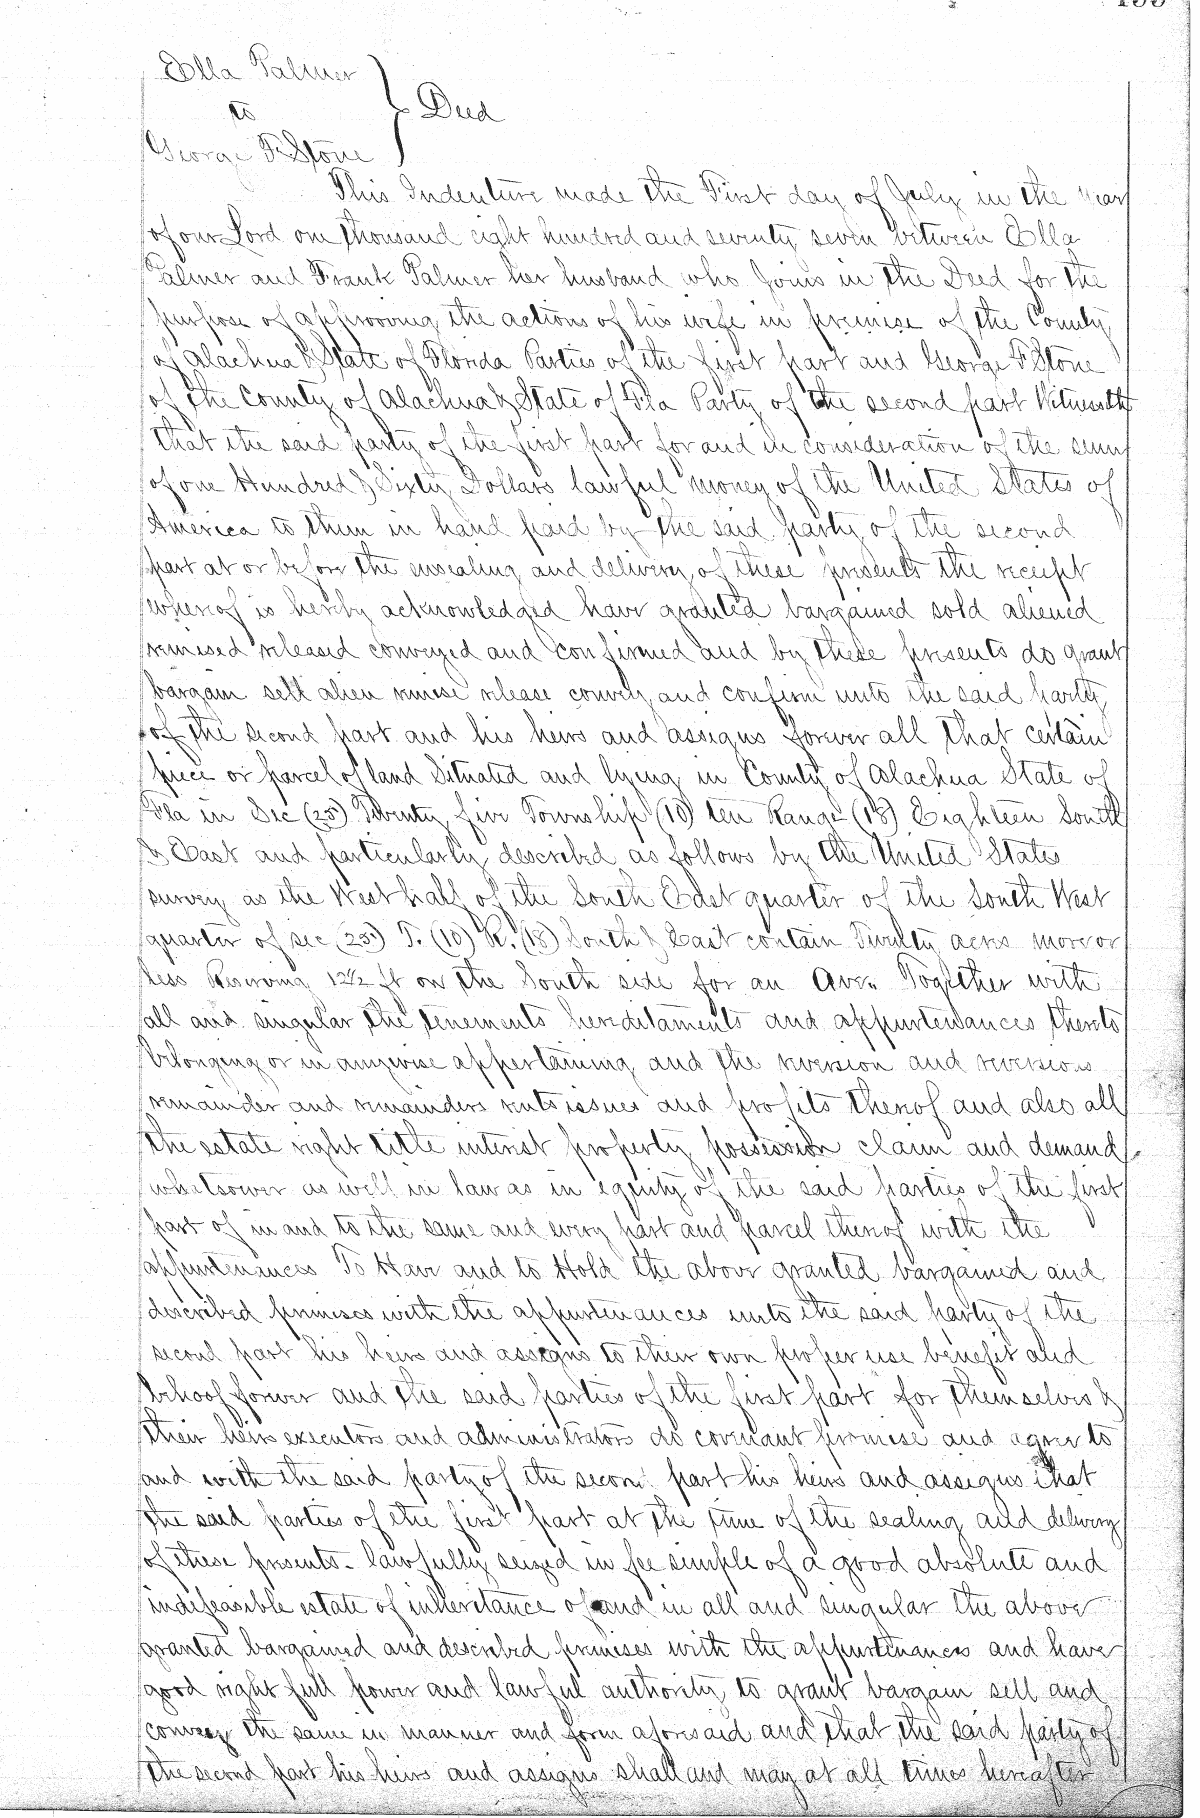 Ella Palmer
to
Deed
George F. Stone
This Indenture made the First day of July in the year
of our Lord one thousand eight hundred and seventy seven between Ella
Palmer and Frank Palmer her husband who joins in the Deed for the
purpose of approoving the actions of his wife in premise of the County
of Alachua & State of Florida Parties of the first part and George F Stone
of the County of Alachua & State of Fla Party of the second part Witnesseth
that the said party of the first part for and in consideration of the sum
of one Hundred & Sixty Dollars lawful money of the United States of
America to them in hand paid by the said party of the second
part at or before the ensealing and delivery of these presents the receipt
whereof is hereby acknowledged have granted bargained sold aliened
remised released conveyed and confirmed and by these presents do grant
bargain sell alien remise release convey and confirm unto the said party
of the second part and his heirs and assigns forever all that certain
piece or parcel of land Situated and lying in County of Alachua State of
Fla in Sec (25) Twenty five Township (10) ten Range (18) Eighteen South
& East and particularly described as follows by the United States
survey as the West half of the South East quarter of the South West
quarter of sec (25) T. (10) R. (18) South & East contain Twenty acres more or
less Reserving 12½ ft on the South side for an Ave. Together with
all and singular the tenements hereditaments and appurtenances thereto
belonging or in anywise appertaining and the reversion and reversions
remainder and remainders rents issues and profits thereof and also all
the estate right title interest property possession claim and demand
whatsoever as well in law as in equity of the said parties of the first
part of in and to the same and every part and parcel thereof with the
appurtenances To Have and to Hold the above granted bargained and
described premises with the appurtenances unto the said party of the
second part his heirs and assigns to their own proper use benefit and
behoof forever and the said parties of the first part for themselves &
their heirs executors and administrators do covenant promise and agree to
and with the said party of the second part his heirs and assigns that
the said parties of the first part at the time of the sealing and delivery
of these presents - lawfully seized in fee simple of a good absolute and
indefeasible estate of inheritance of and in all and singular the above
granted bargained and described premises with the appurtenances and have
good right full power and lawful authority to grant bargain sell and
convey the same in manner and form aforesaid and that the said party of
the second part his heirs and assigns shall and may at all times hereafter